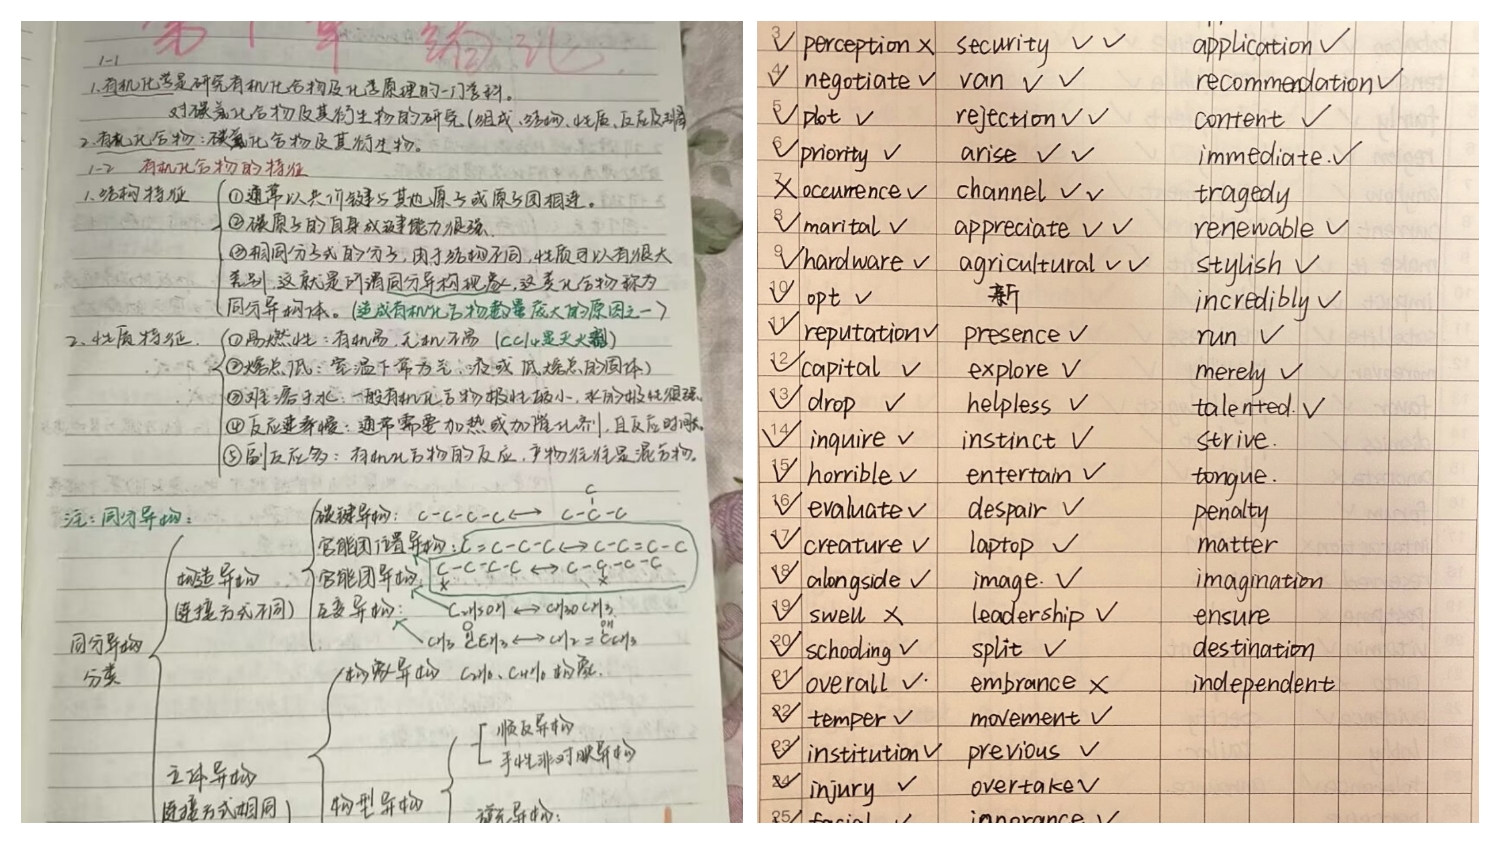 第一章 绪论
1-1
1.有机化学是研究有机化合物及化学原理的一门学科。
对碳氢化合物及其衍生物的研究(组成、结构、性质、反应及
2.有机化合物:碳氢化合物及其衍生物。
1-2 有机化合物的特征
1.结构特征
①通常以共价键与其他原子或原子团相连。
②碳原子的自身成键能力很强。
③相同分子式的分子,由于结构不同,性质可以有很大
差别,这就是所谓同分异构现象,这类化合物称为
同分异构体。(造成有机化合物数量庞大的原因之一)
2.性质特征.
①易燃性:有机易,无机不易 (CCl4是灭火剂)
②熔点低:室温下常为气、液或低熔点的固体)
③难溶于水:一般有机化合物极性较小,水的极性很强.
④反应速率慢:通常需要加热或加催化剂,且反应时间长.
⑤副反应多:有机化合物的反应,产物往往是混合物.
注:同分异构:
碳键异构: C-C-C-C⟷ C-C-C
C
官能团位置异构:C=C-C-C⟷C-C=C-C
官能团异构 C-C-C-C ⟷ C-C-C-C
X X
互变异构: C2H5OH ⟷ CH3OCH3
CH3CCH3 ⟷ CH2=CCH3
O OH
构造异构
(连接方式不同)
同分异构
分类
构象异构
顺反异构
手性非对映异构
立体异构
(连接方式相同)
构型异构
3 perception × security ✓ ✓ application ✓
4 negotiate ✓ van ✓ ✓ recommendation ✓
5 plot ✓ rejection ✓ ✓ content ✓
6 priority ✓ arise ✓ ✓ immediate. ✓
7 occurrence ✓ channel ✓ ✓ tragedy
8 marital ✓ appreciate ✓ ✓ renewable ✓
9 hardware ✓ agricultural ✓ ✓ stylish ✓
10 opt ✓ 新 incredibly ✓
11 reputation ✓ presence ✓ run ✓
12 capital ✓ explore ✓ merely ✓
13 drop ✓ helpless ✓ talented. ✓
14 inquire ✓ instinct ✓ strive.
15 horrible ✓ entertain ✓ tongue.
16 evaluate ✓ despair ✓ penalty
17 creature ✓ laptop ✓ matter
18 alongside ✓ image. ✓ imagination
19 swell × leadership ✓ ensure
20 schooling ✓ split ✓ destination
21 overall ✓. embrance × independent
22 temper ✓ movement ✓
23 institution ✓ previous ✓
24 injury ✓ overtake ✓
25 facial ✓ ignorance ✓